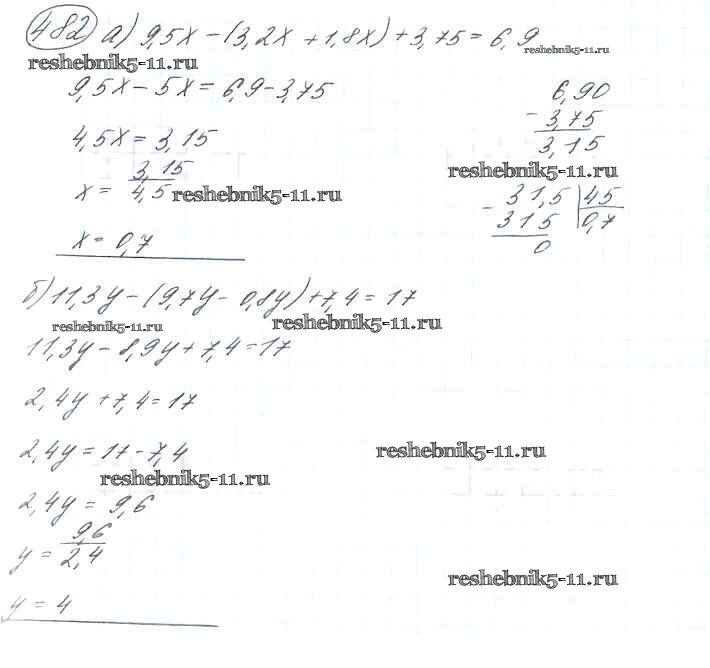 482 а) 9,5x - (3,2x + 1,8x) + 3,75 = 6,9
reshebnik5-11.ru
reshebnik5-11.ru
9,5x - 5x = 6,9 - 3,75
6,90
- 3,75
3,15
4,5x = 3,15
x = 3,15 / 4,5
reshebnik5-11.ru
reshebnik5-11.ru
- 31,5 | 45
315 0,7
0
x = 0,7
б) 11,3y - (9,7y - 0,8y) + 7,4 = 17
reshebnik5-11.ru
reshebnik5-11.ru
11,3y - 8,9y + 7,4 = 17
2,4y + 7,4 = 17
2,4y = 17 - 7,4
reshebnik5-11.ru
reshebnik5-11.ru
2,4y = 9,6
y = 9,6 / 2,4
reshebnik5-11.ru
y = 4